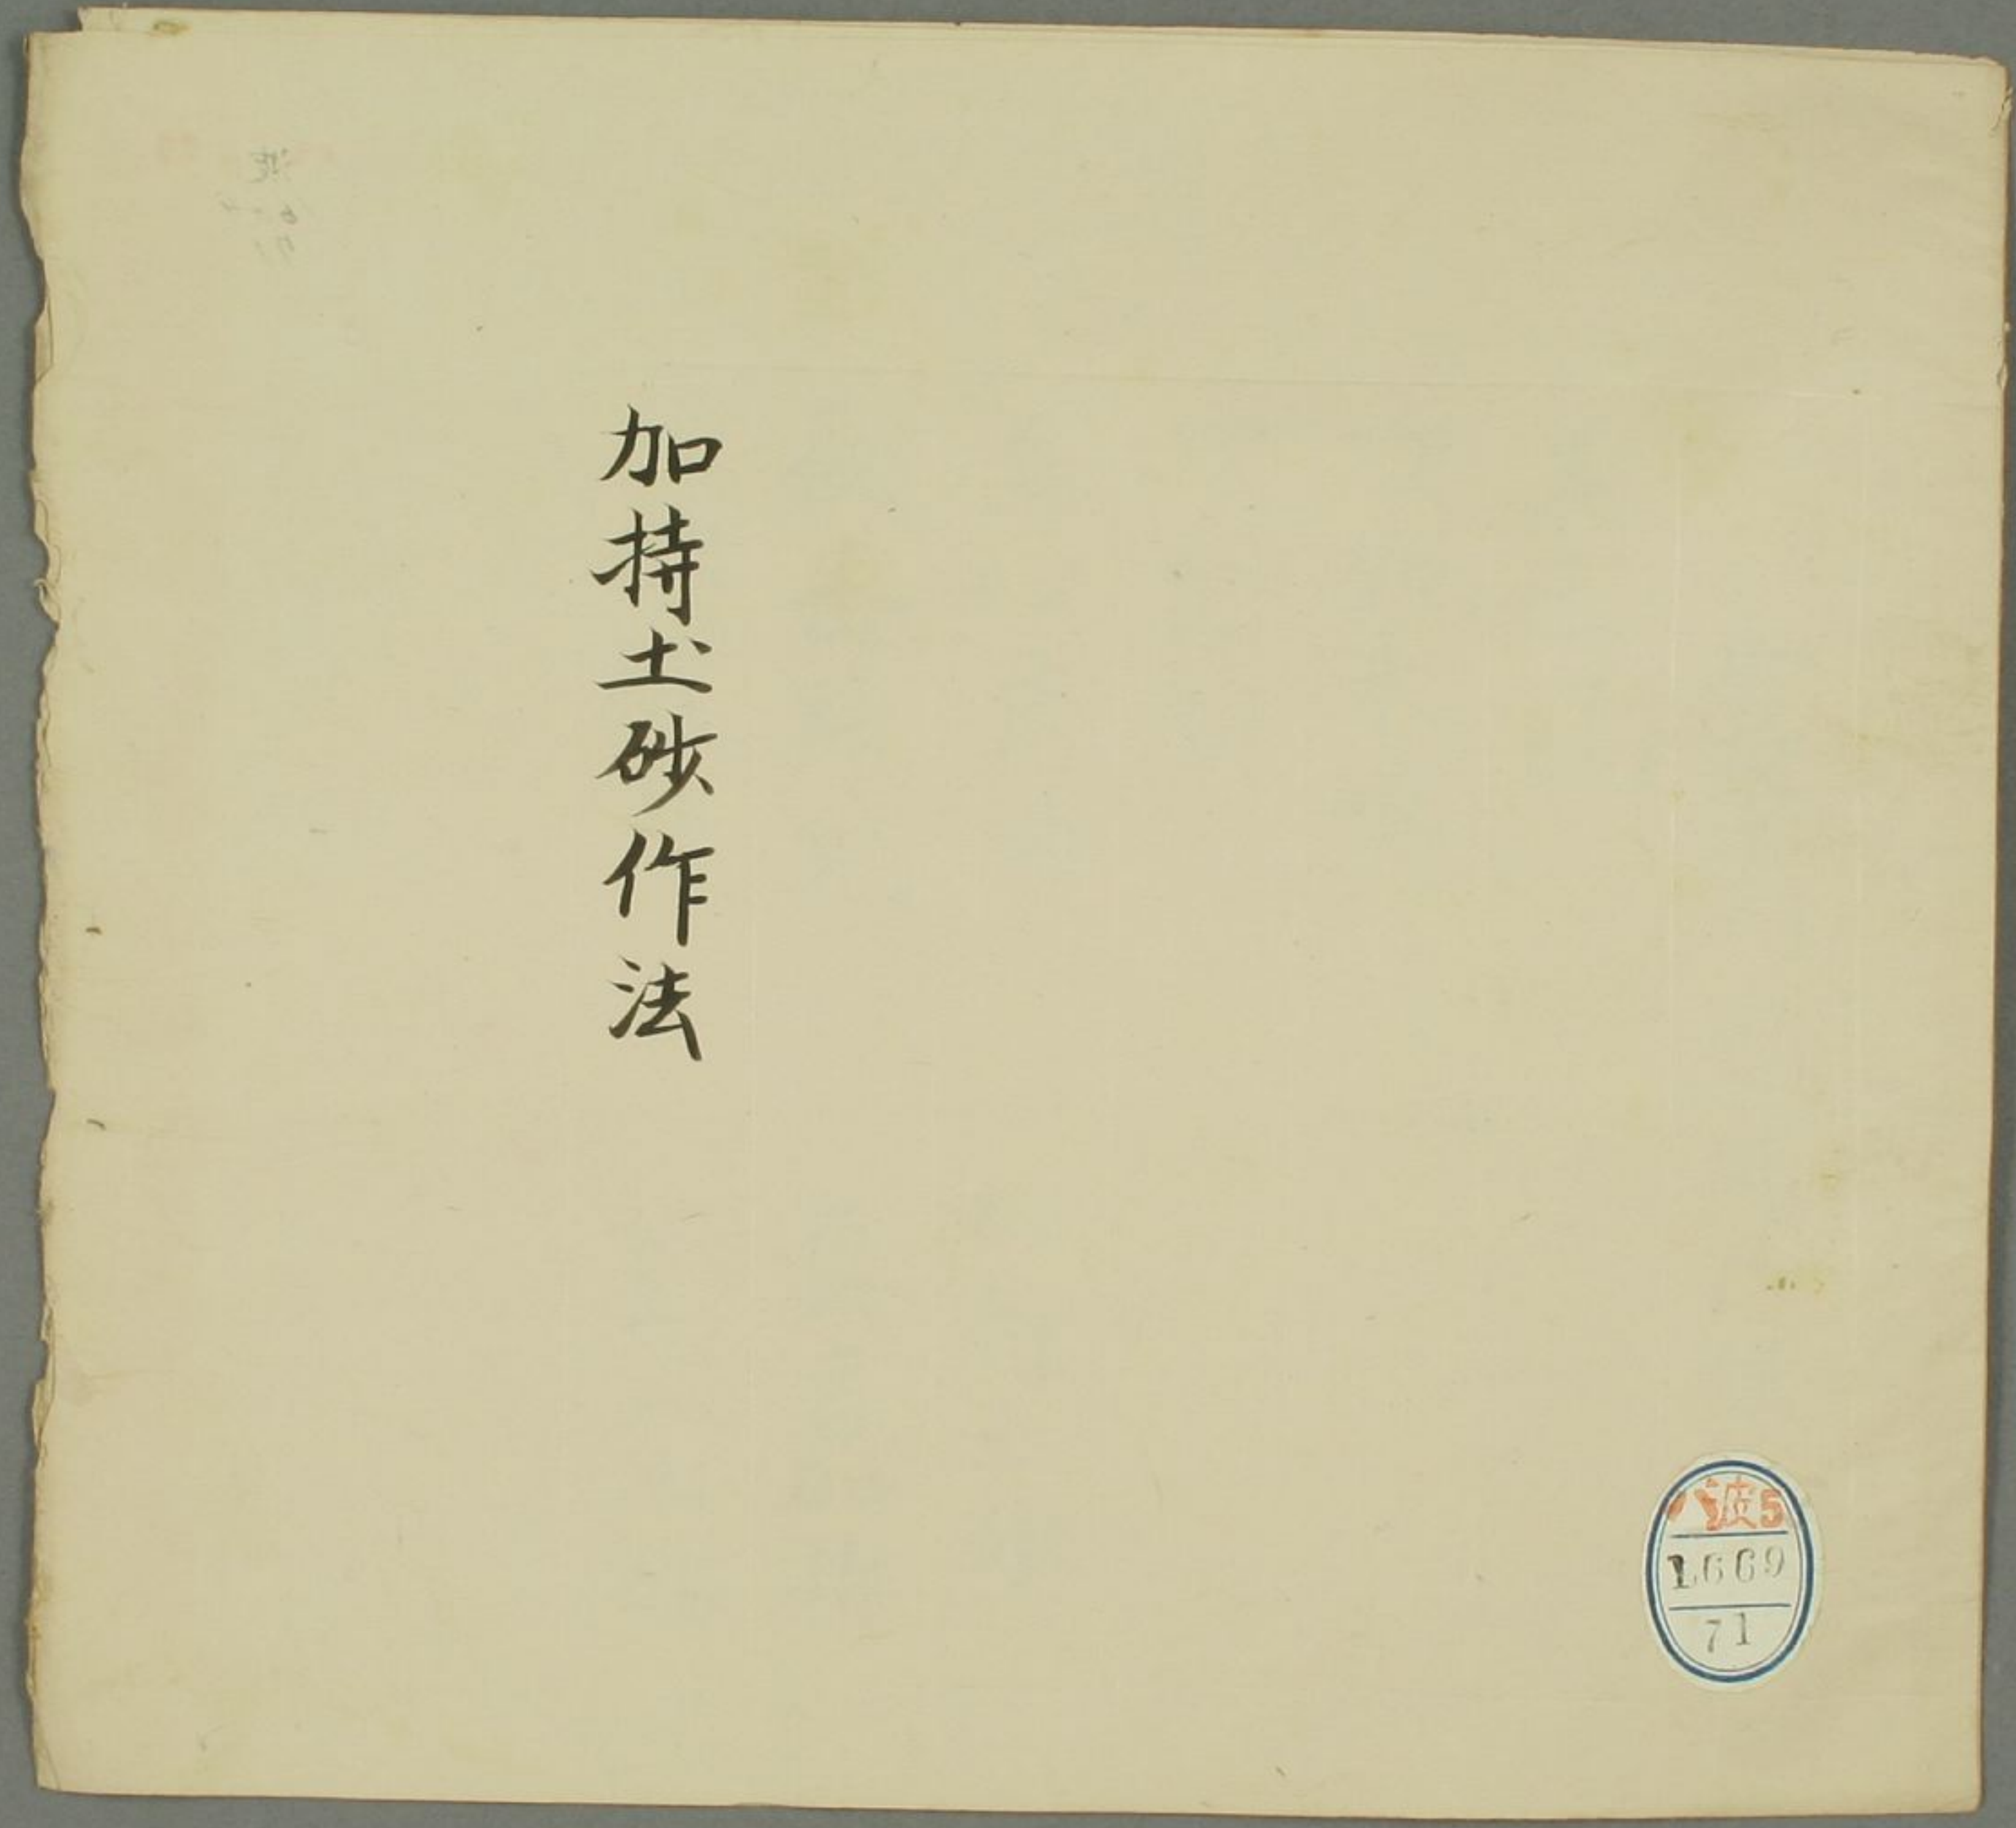 加持土砂作法
波5
1669
71